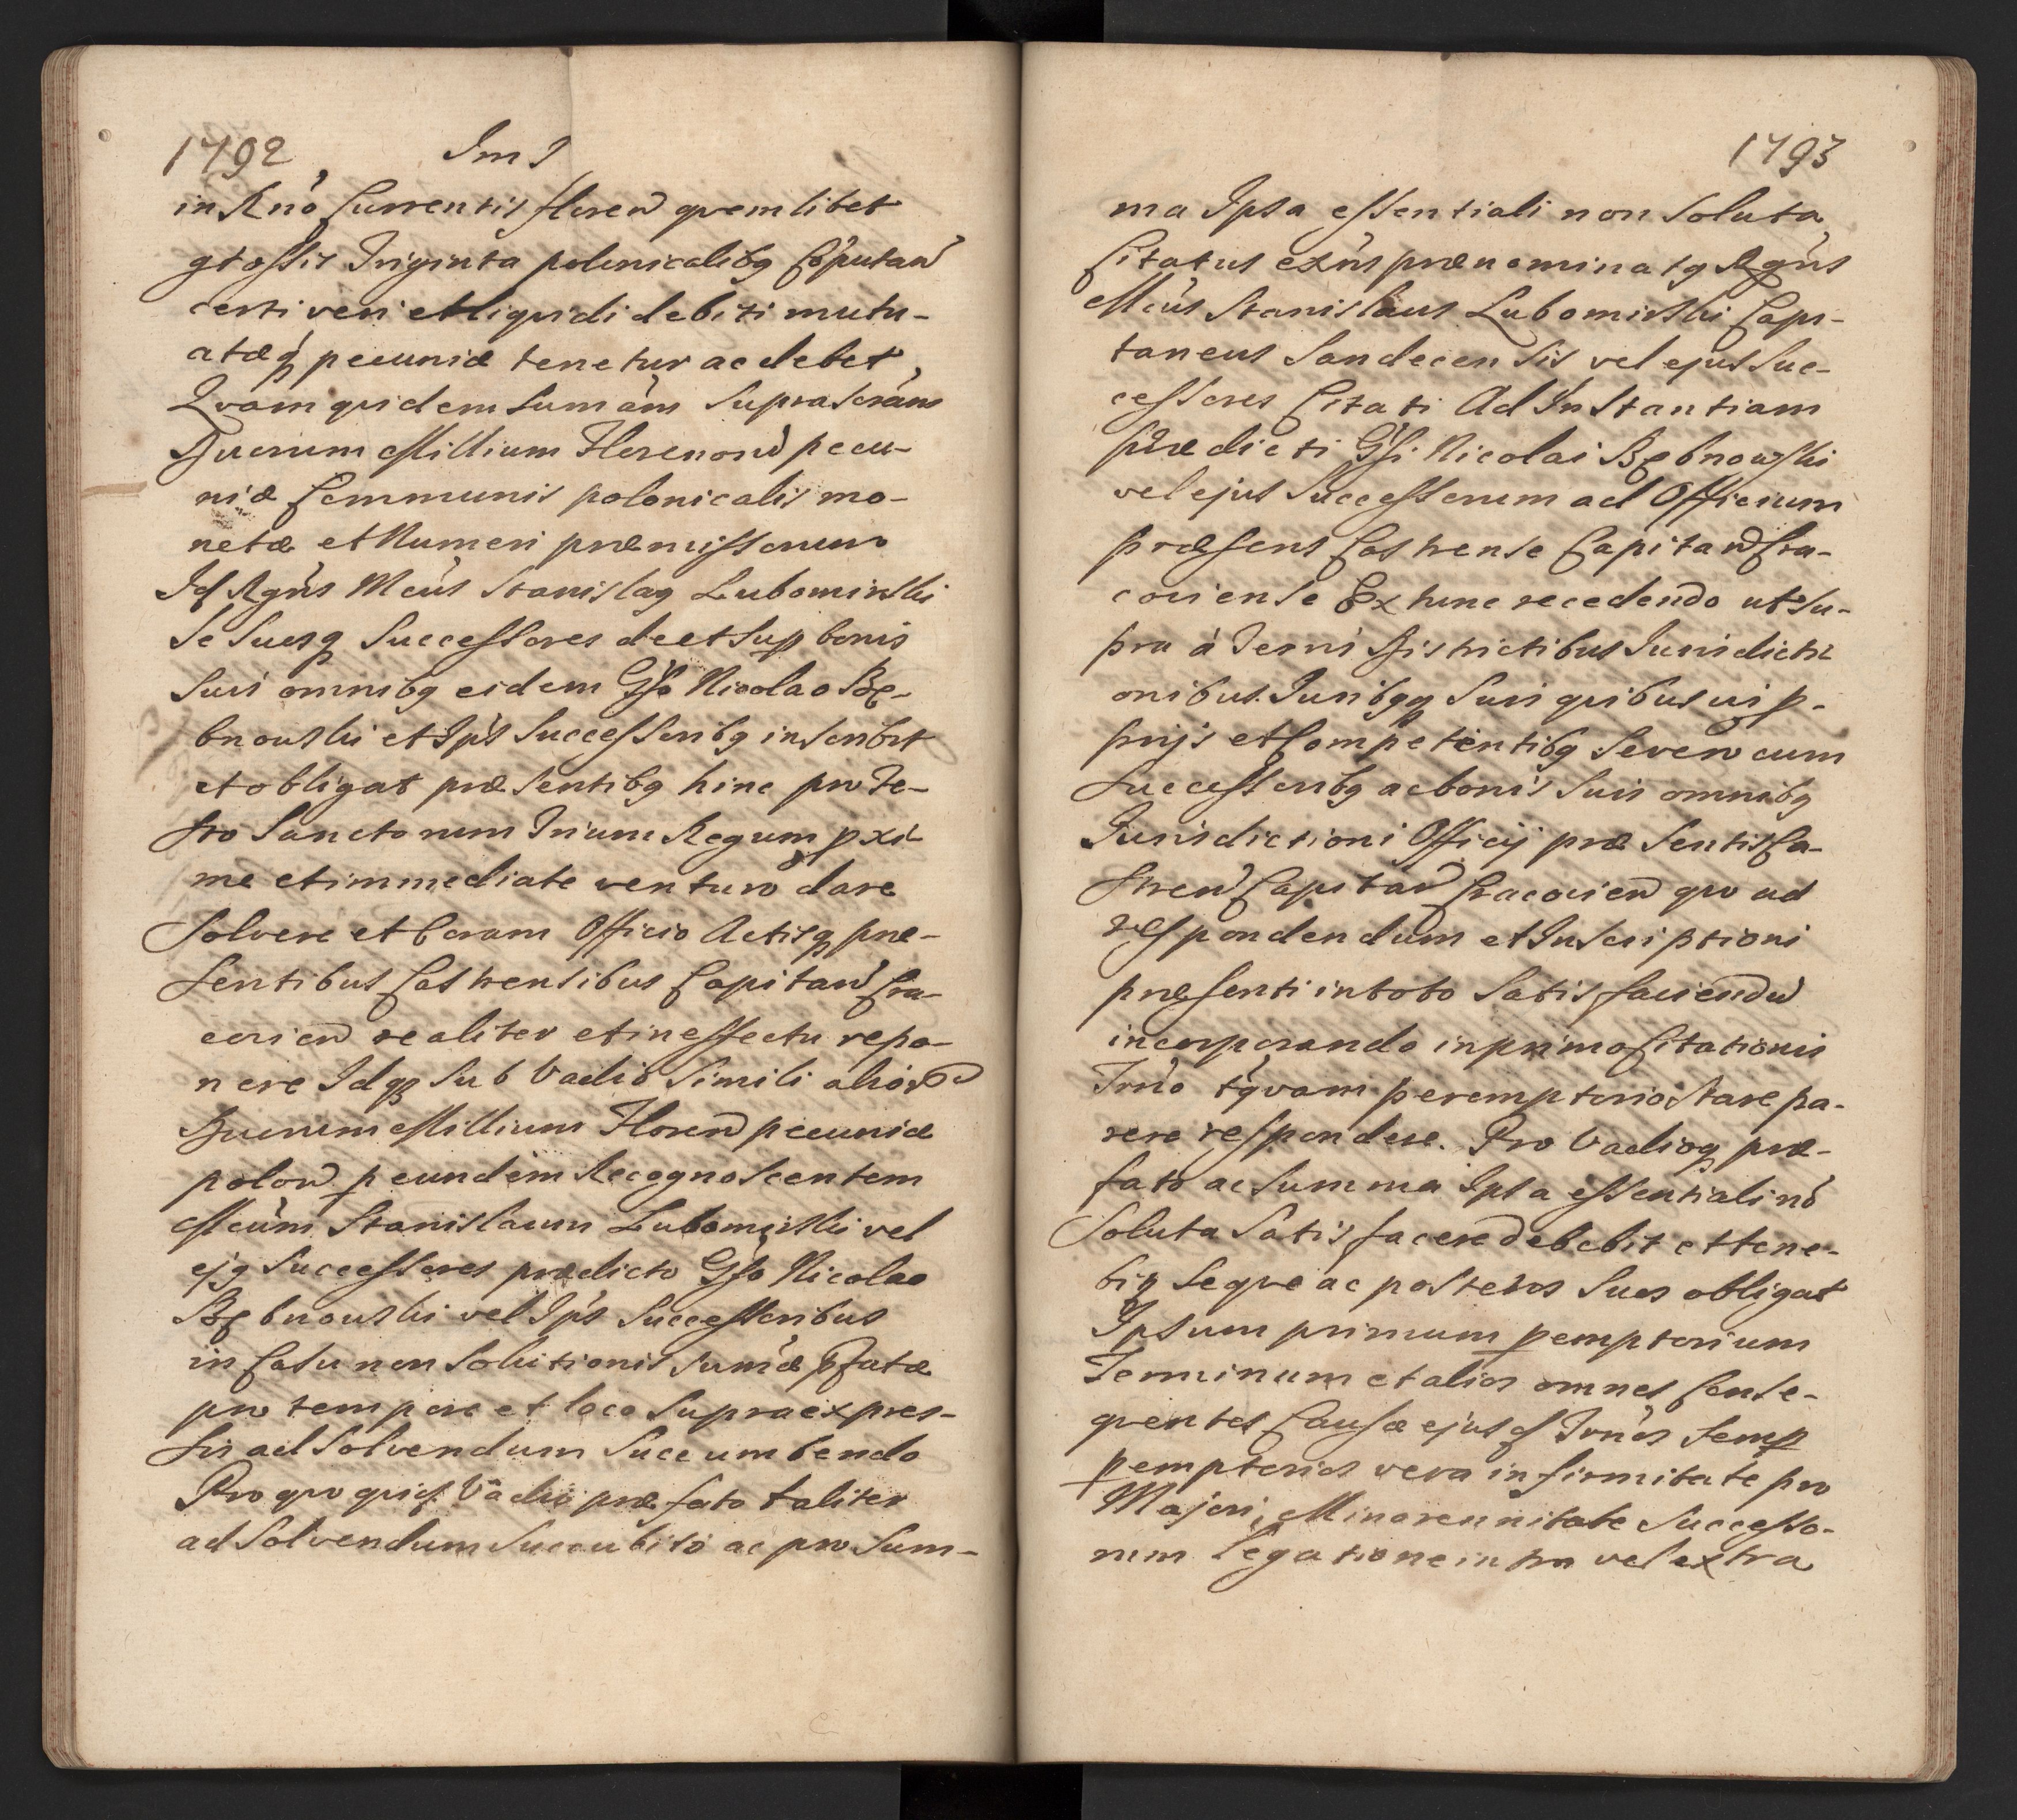 1792
Im I
in Rno Currentis floren quemlibet
grossis Triginta polonicalibq Coputan
certi veri et liquidi debiti mutu-
atæq pecuniæ tenetur ac debet
Qvam quidem Sumam Suprascram
Duorum Millium Florenorum pecu-
niæ Communis polonicalis mo-
netæ et Numeri præmissorum
Id Rgns Mcus Stanislaq Lubomirski
Se Suosq Successores de et Sup bonis
Suis omnibq eidem Gso Nicolao Bę-
bnowski et Ips Successoribq inscribit
et obligat præsentibq hinc pro Fe-
sto Sanctorum Trium Regum pxi-
me et immediate venturo dare
Solvere et Coram Officio Actisq præ-
sentibus Castrensibus Capitan Cra-
covien realiter et in effectu repo-
nere Idq Sub Vadio Simili aliorum
Duorum Millium Floren pecuniæ
polon p eundem Recognoscentem
Mcum Stanislaum Lubomirski vel
ejq Successores prædicto Gso Nicolao
Bębnowski vel Ips Successoribus
in Casu non Solutionis Sumæ pfatæ
pro tempore et loco Supraexpres-
sis ad Solvendum Succumbendo
Pro quo quid Vadio præfato taliter
ad Solvendum Succubito ac pro Sum-
1793
ma Ipsa essentiali non Soluta
Citatus exns prænominatq Rgns
Mcus Stanislaus Lubomirski Capi-
taneus Sandecensis vel ejus Suc-
cessores Citati Ad Instantiam
prædicti Gsi Nicolai Bębnowski
vel ejus Successorum ad Officium
præsens Castrense Capitan Cra-
coviense Ex hunc recedendo ut Su-
pra à Terris Districtibus Jurisdicti
onibus Juribqq Suis quibusvis p-
prijs et Competentibq Seven cum
Successoribq ac bonis Suis omnibq
Jurisdictioni Officij præsentis Ca-
stren Capitan Cracovien quo ad
respondendum et Inscriptioni
præsenti in toto Satisfaciendu
incorporando in primo Citationis
Trno tqvam peremptorio Stare pa-
rere respondere. Pro Vadioq præ-
fato ac Summa Ipsa essentiali no
Soluta Satisfacere debebit et tene-
bit Seque ac posteros Suos obligat
Ipsum primum pemptorium
Terminum et alios omnes Conse-
quentes Causæ ejusd Trnos Semp
pemptorios vera infirmitate pro
Majori, Minorennitate Successo-
rum legatione intra vel extra